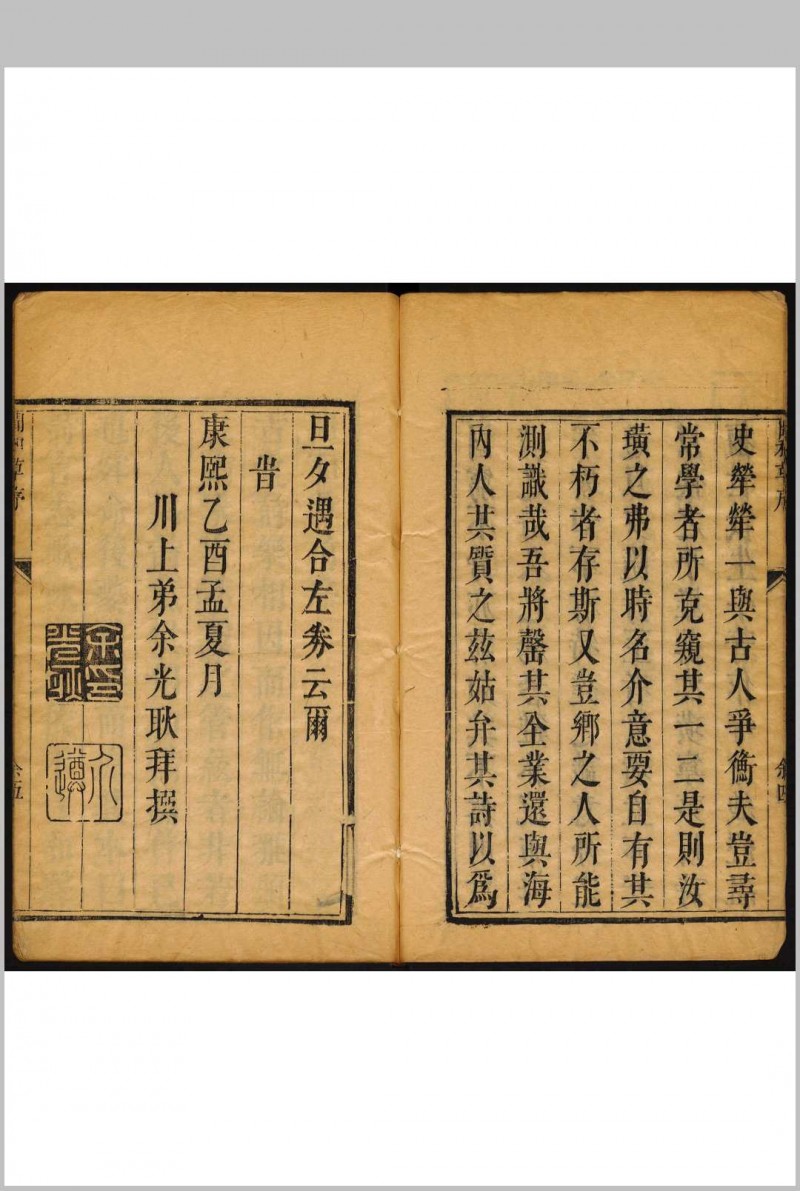 史犖犖一與古人爭衡夫豈尋
常學者所克窺其一二是則汝
璜之弗以時名介意要自有其
不朽者存斯又豈鄉之人所能
測識哉吾將罄其全業還與海
內人共質之兹姑弁其詩以爲
旦夕遇合左券云爾
旹
康熙乙酉孟夏月
川上弟余光耿拜撰
余印光耿
介遵